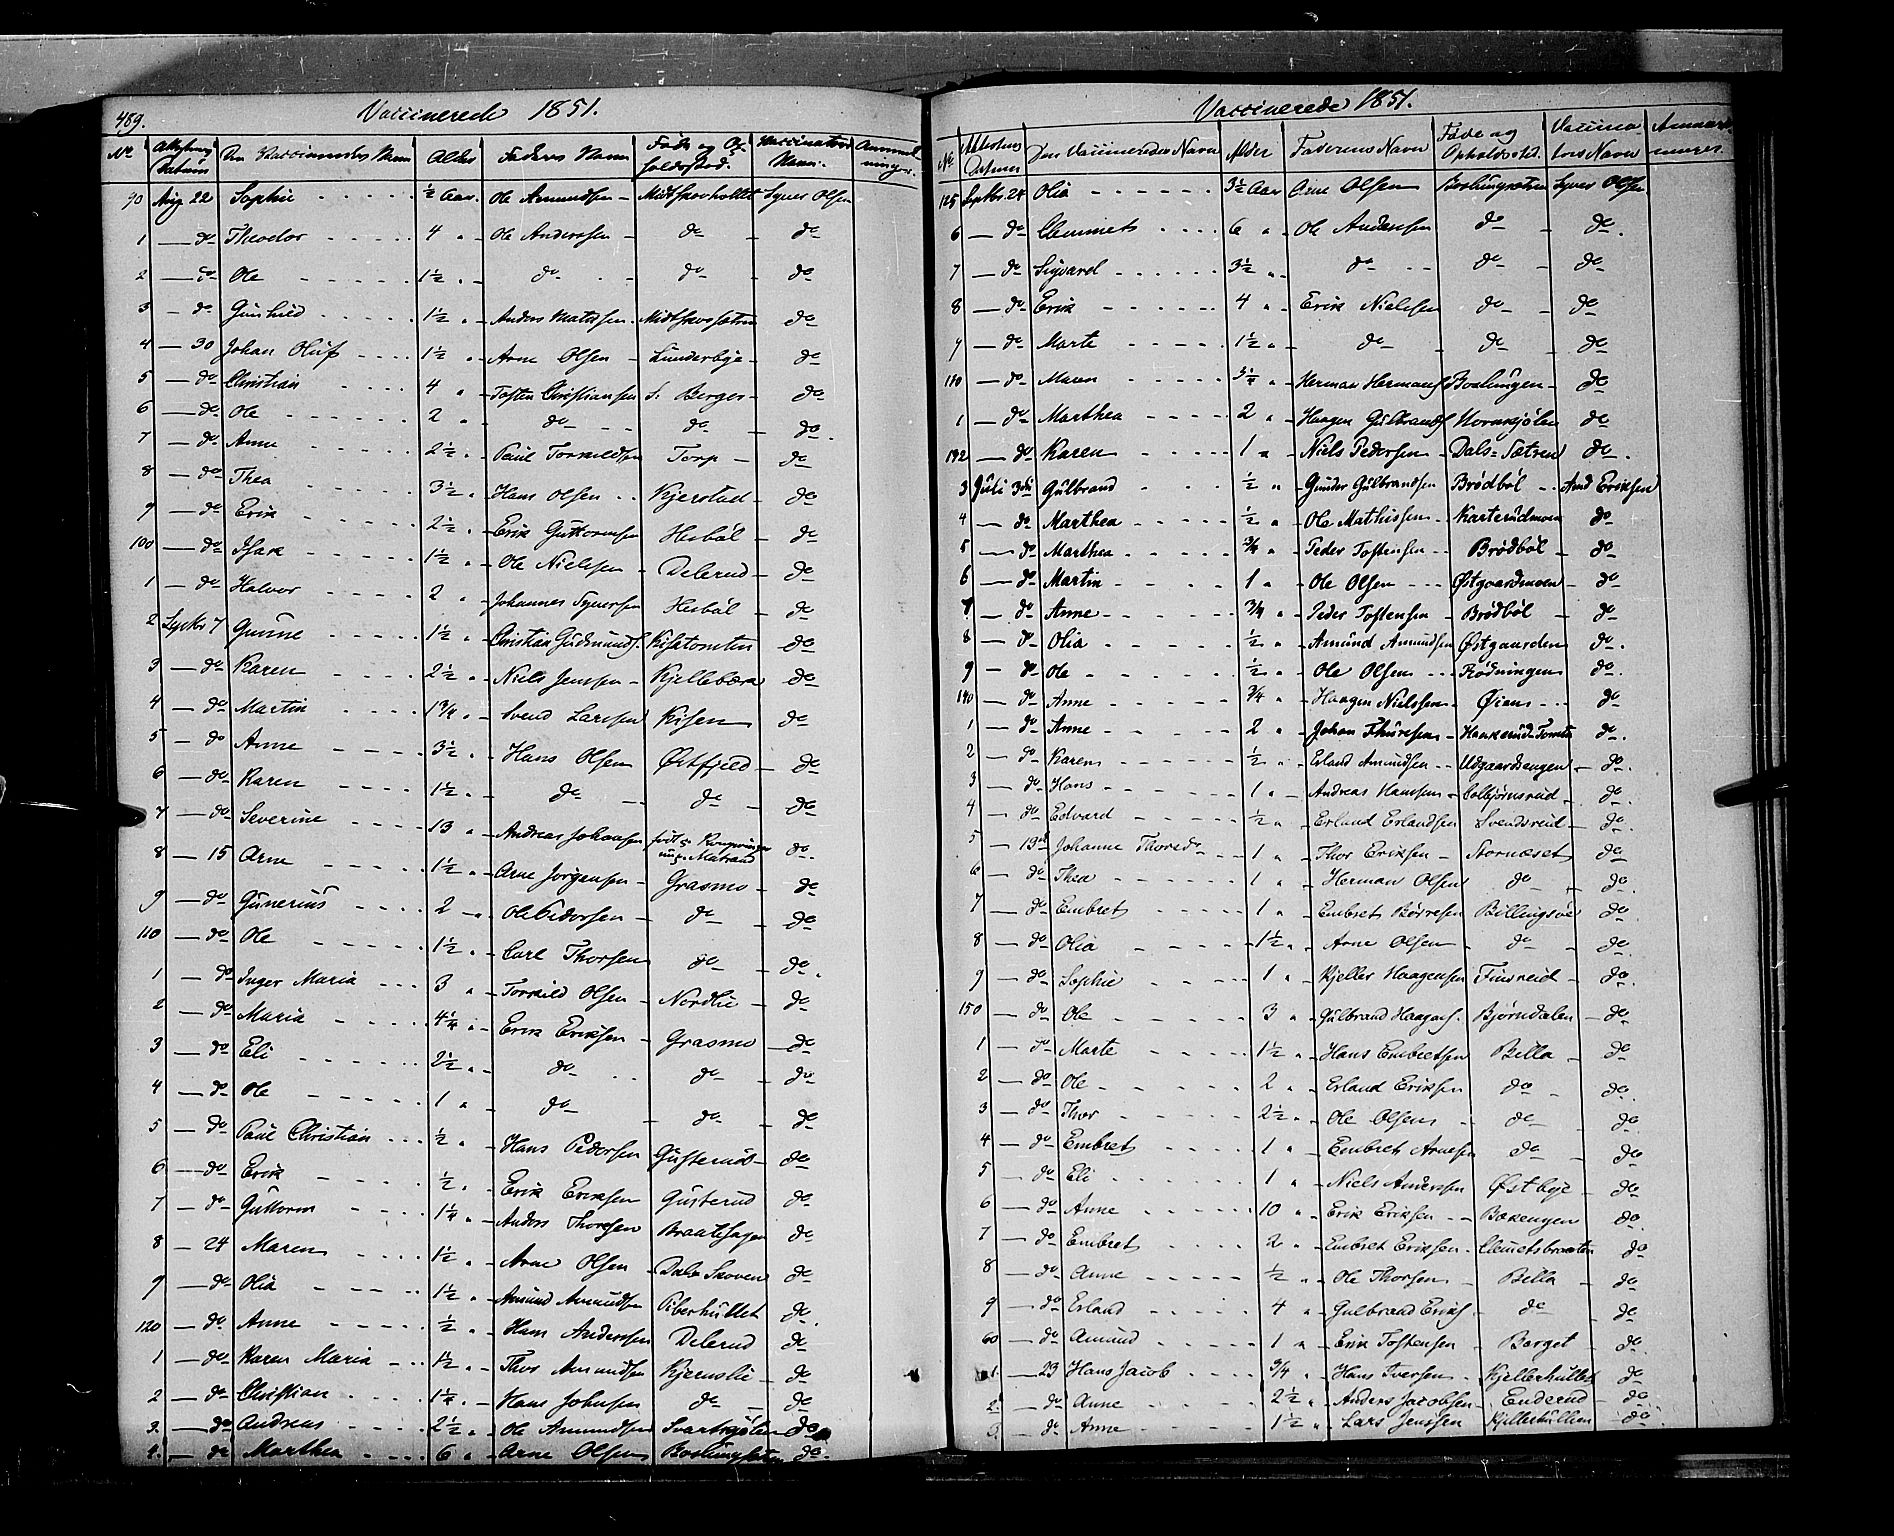 489.
Vaccinerede 1851.
No Attestens Datum Den Vaccineredes Navn Alder Faderens Navn Føde og Opholdssted. Vaccinators Navn. Anmærkninger.
90 Aug 22 Sophie ½ Aar. Ole Amundsen Midtskovholtet Syver Olsen
1 — do Theodor 4 " Ole Andersen do do
2 — do Ole 1½ " do do do
3 — do Gunhild 1½ " Anders Matisen Midtskovsætren do
4 — 30 Johan Oluf 1½ " Arne Olsen Lunderbye do
5 — do Christian 4 " Tosten Christiansen S. Berger do
6 — do Ole 2 " do do do
7 — do Anne 2½ " Paul Torkildsen Torp do
8 — do Thea 3½ " Hans Olsen Kjerstad do
9 — do Erik 2½ " Erik Guttormsen Hesbøl do
100 — do Isak 1½ " Ole Nielsen Delerud do
1 — do Halvor 2 " Johannes Syversen Hesbøl do
2 Septbr 7 Gunne 1½ " Christian Gudmunds. Kisatomten do
3 — do Karen 2½ " Niels Jensen Kjellebæk do
4 — do Martin 1¾ " Svend Larsen Kisen do
5 — do Anne 3½ " Hans Olsen Østfjeld do
6 — do Karen 1½ " do do do
7 — do Severine 13 " Andreas Johansen født i Kongsvinger Matrand do
8 — 15 Arne 1½ " Arne Jörgensen Grasmo do
9 — do Gunerius 2 " Ole Pedersen do do
110 — do Ole 1½ " Carl Thorsen do do
1 — do Inger Maria 3 " Torkild Olsen Nordlie do
2 — do Maria 4¼ " Erik Eriksen Grasmo do
3 — do Eli 2½ " do do do
4 — do Ole 1 " do do do
5 — do Paul Christian ½ " Hans Pedersen Gusterud do
6 — do Erik ½ " Erik Eriksen Gusterud do
7 — do Guttorm 1¼ " Anders Thoresen Braatehagen do
8 — 24 Maren 1½ " Arne Olsen Dals Skoven do
9 — do Olia 1½ " Amund Amundsen Piberhullet do
120 — do Anne ½ " Hans Andersen Delerud do
1 — do Karen Maria 1½ " Thor Amundsen Kjernslie do
2 — do Christian 1¼ " Hans Johnsen do do
3. — do Andreas 2½ " Ole Amundsen Svartkjølen do
4. — do Marthea 6 " Arne Olsen do
Vaccinerede 1851.
No Attestens Datum Den Vaccineredes Navn Alder Faderens Navn Føde og Opholdssted. Vaccinators Navn Anmærkninger.
125 Septbr. 24 Olia 3½ Aar Arne Olsen Syver Olsen
6 — do Clemmet 6 " Ole Andersen do do
7 — do Sigvard 3½ " do do do
8 — do Erik 4 " Erik Nielsen do do
9 — do Marte 1½ " do do do
130 — do Maren " Herman Hermans. do
1 — do Marthea 2 " Haagen Gulbrands. Hornkjølen do
132 — do Karen 1 " Niels Pedersen Dals-Sætren do
3 Juli 3die Gulbrand ½ " Gunder Gulbrandsen Brødbøl And Eriksen
4 — do Marthea ½ " Ole Mathissen Karterudmoen do
5 — do Marthea ¾ " Peder Tostensen Brødbøl do
6 — do Martin 1 " Ole Olsen Østgaardmoen do
7 — do Anne ¾ " Peder Tostensen Brødbøl do
8 — do Olia ½ " Amund Amundsen Østgaarden do
9 — do Ole ½ " Ole Olsen Rødningen do
140 — do Anne ¾ " Haagen Nielssen Øiens do
1 — do Anne 2 " Johan Thuresen Hankerud-Tomten do
2 — do Karen ½ " Erland Amundsen Udgaardsengen do
3 — do Hans 1 " Andreas Hansen Colbjørnsrud do
4 — do Edvard ½ " Erland Erlandsen Svendsrud do
5 — 19de Johanne Thoredr 1 " Thor Eriksen Stornæset do
6 — do Thea 1 " Herman Olsen do do
7 — do Embret 1 " Embret Børresen do
8 — do Olia 1½ " Arne Olsen do do
9 — do Sophie 1 " Kjeller Haagensen Finsrud do
150 — do Ole 3 " Gulbrand Haagens. Bjørndalen do
1 — do Marte 1½ " Hans Embretsen Bella do
2 — do Ole 2 " Erland Eriksen do do
3 — do Thor 2½ " Ole Olsen do do
4 — do Embret 1 " Embret Arnesen do do
5 — do Eli 1 " Niels Andersen Østbye do
6 — do Anne 10 " Erik Eriksen Bakengen do
7 — do Embret 2 " Embret Eriksen Clemetsbraaten do
8 — do Anne ½ " Ole Thorsen Bella do
9 — do Erland 4 " Gulbrand Eriks. do do
60 — do Amund 1 " Erik Tostensen Berget do
1 — 23 Hans Jacob ¾ " Hans Iversen Kjellerhullet do
2 — do Anne 2½ " Anders Jacobsen Enderud do
3 — do Anne 1½ " Lars Jenssen Kjellerhullen do